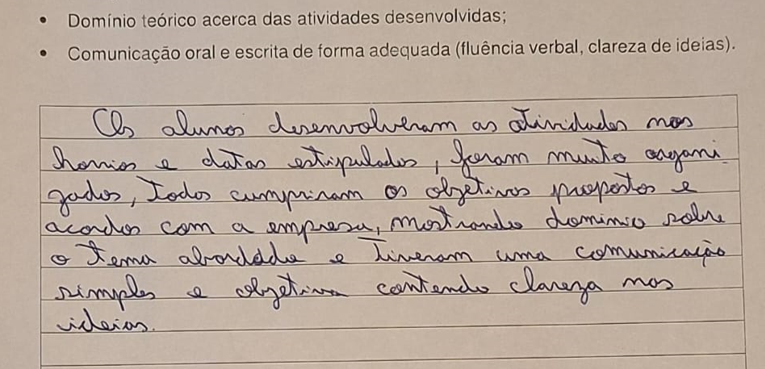 • Domínio teórico acerca das atividades desenvolvidas;
• Comunicação oral e escrita de forma adequada (fluência verbal, clareza de ideias).
Os alunos desenvolveram as atividades nos
horrios e datas estipulados, foram muito organi
zados, Todos cumpriram os objetivos propostos e
acordos com a empresa, mostrando dominio sobre
o tema abordado e tiveram uma comunicação
simples e objetiva contendo clareza nas
ideias.